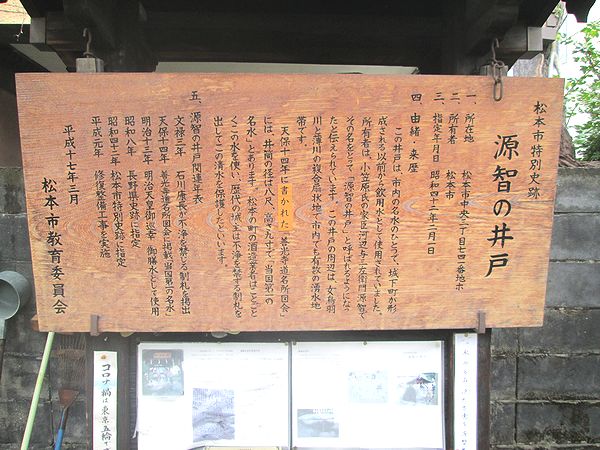 松本市特別史跡
源智の井戸
一、所在地　松本市中央三丁目七四一番地ホ
二、所有者　松本市
三、指定年月日　昭和四十二年二月一日
四、由緒・来歴
この井戸は、市内の名水のひとつで、城下町が形
成される以前から飲用水として使用されていました。
所有者は、小笠原氏の家臣河辺与三左衛門源智で、
その名をとって「源智の井戸」と呼ばれるようになっ
たと伝えられています。この井戸の周辺は、女鳥羽
川と薄川の複合扇状地で市内でも有数の湧水地
帯です。
天保十四年に書かれた「善光寺道名所図会」
には、井筒の径は八尺、高さ九寸で、「当国第一の
名水」とあります。松本の町の酒造業者はことごと
くこの水を使い、歴代の城主は不浄を禁ずる制札を
出してこの清水を保護したといいます。
五、源智の井戸関連年表
文禄三年　石川康長が不浄を禁ずる制札を掲出
天保十四年　善光寺道名所図会に掲載「当国第一の名水」
明治十三年　明治天皇御巡幸　御膳水として使用
昭和八年　長野県史跡に指定
昭和四十二年　松本市特別史跡に指定
平成元年　修復整備工事を実施
平成十七年三月
松本市教育委員会
コロナ禍は東京五輪